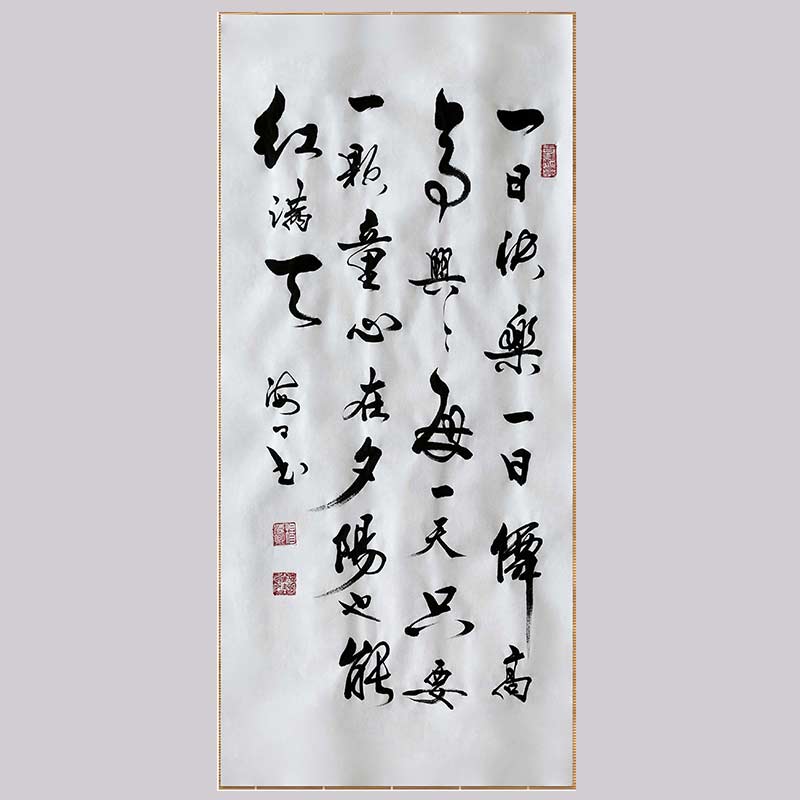 一日快樂一日僊高
高興〻每一天只要
一顆童心在夕陽也能
红滿天
海 书